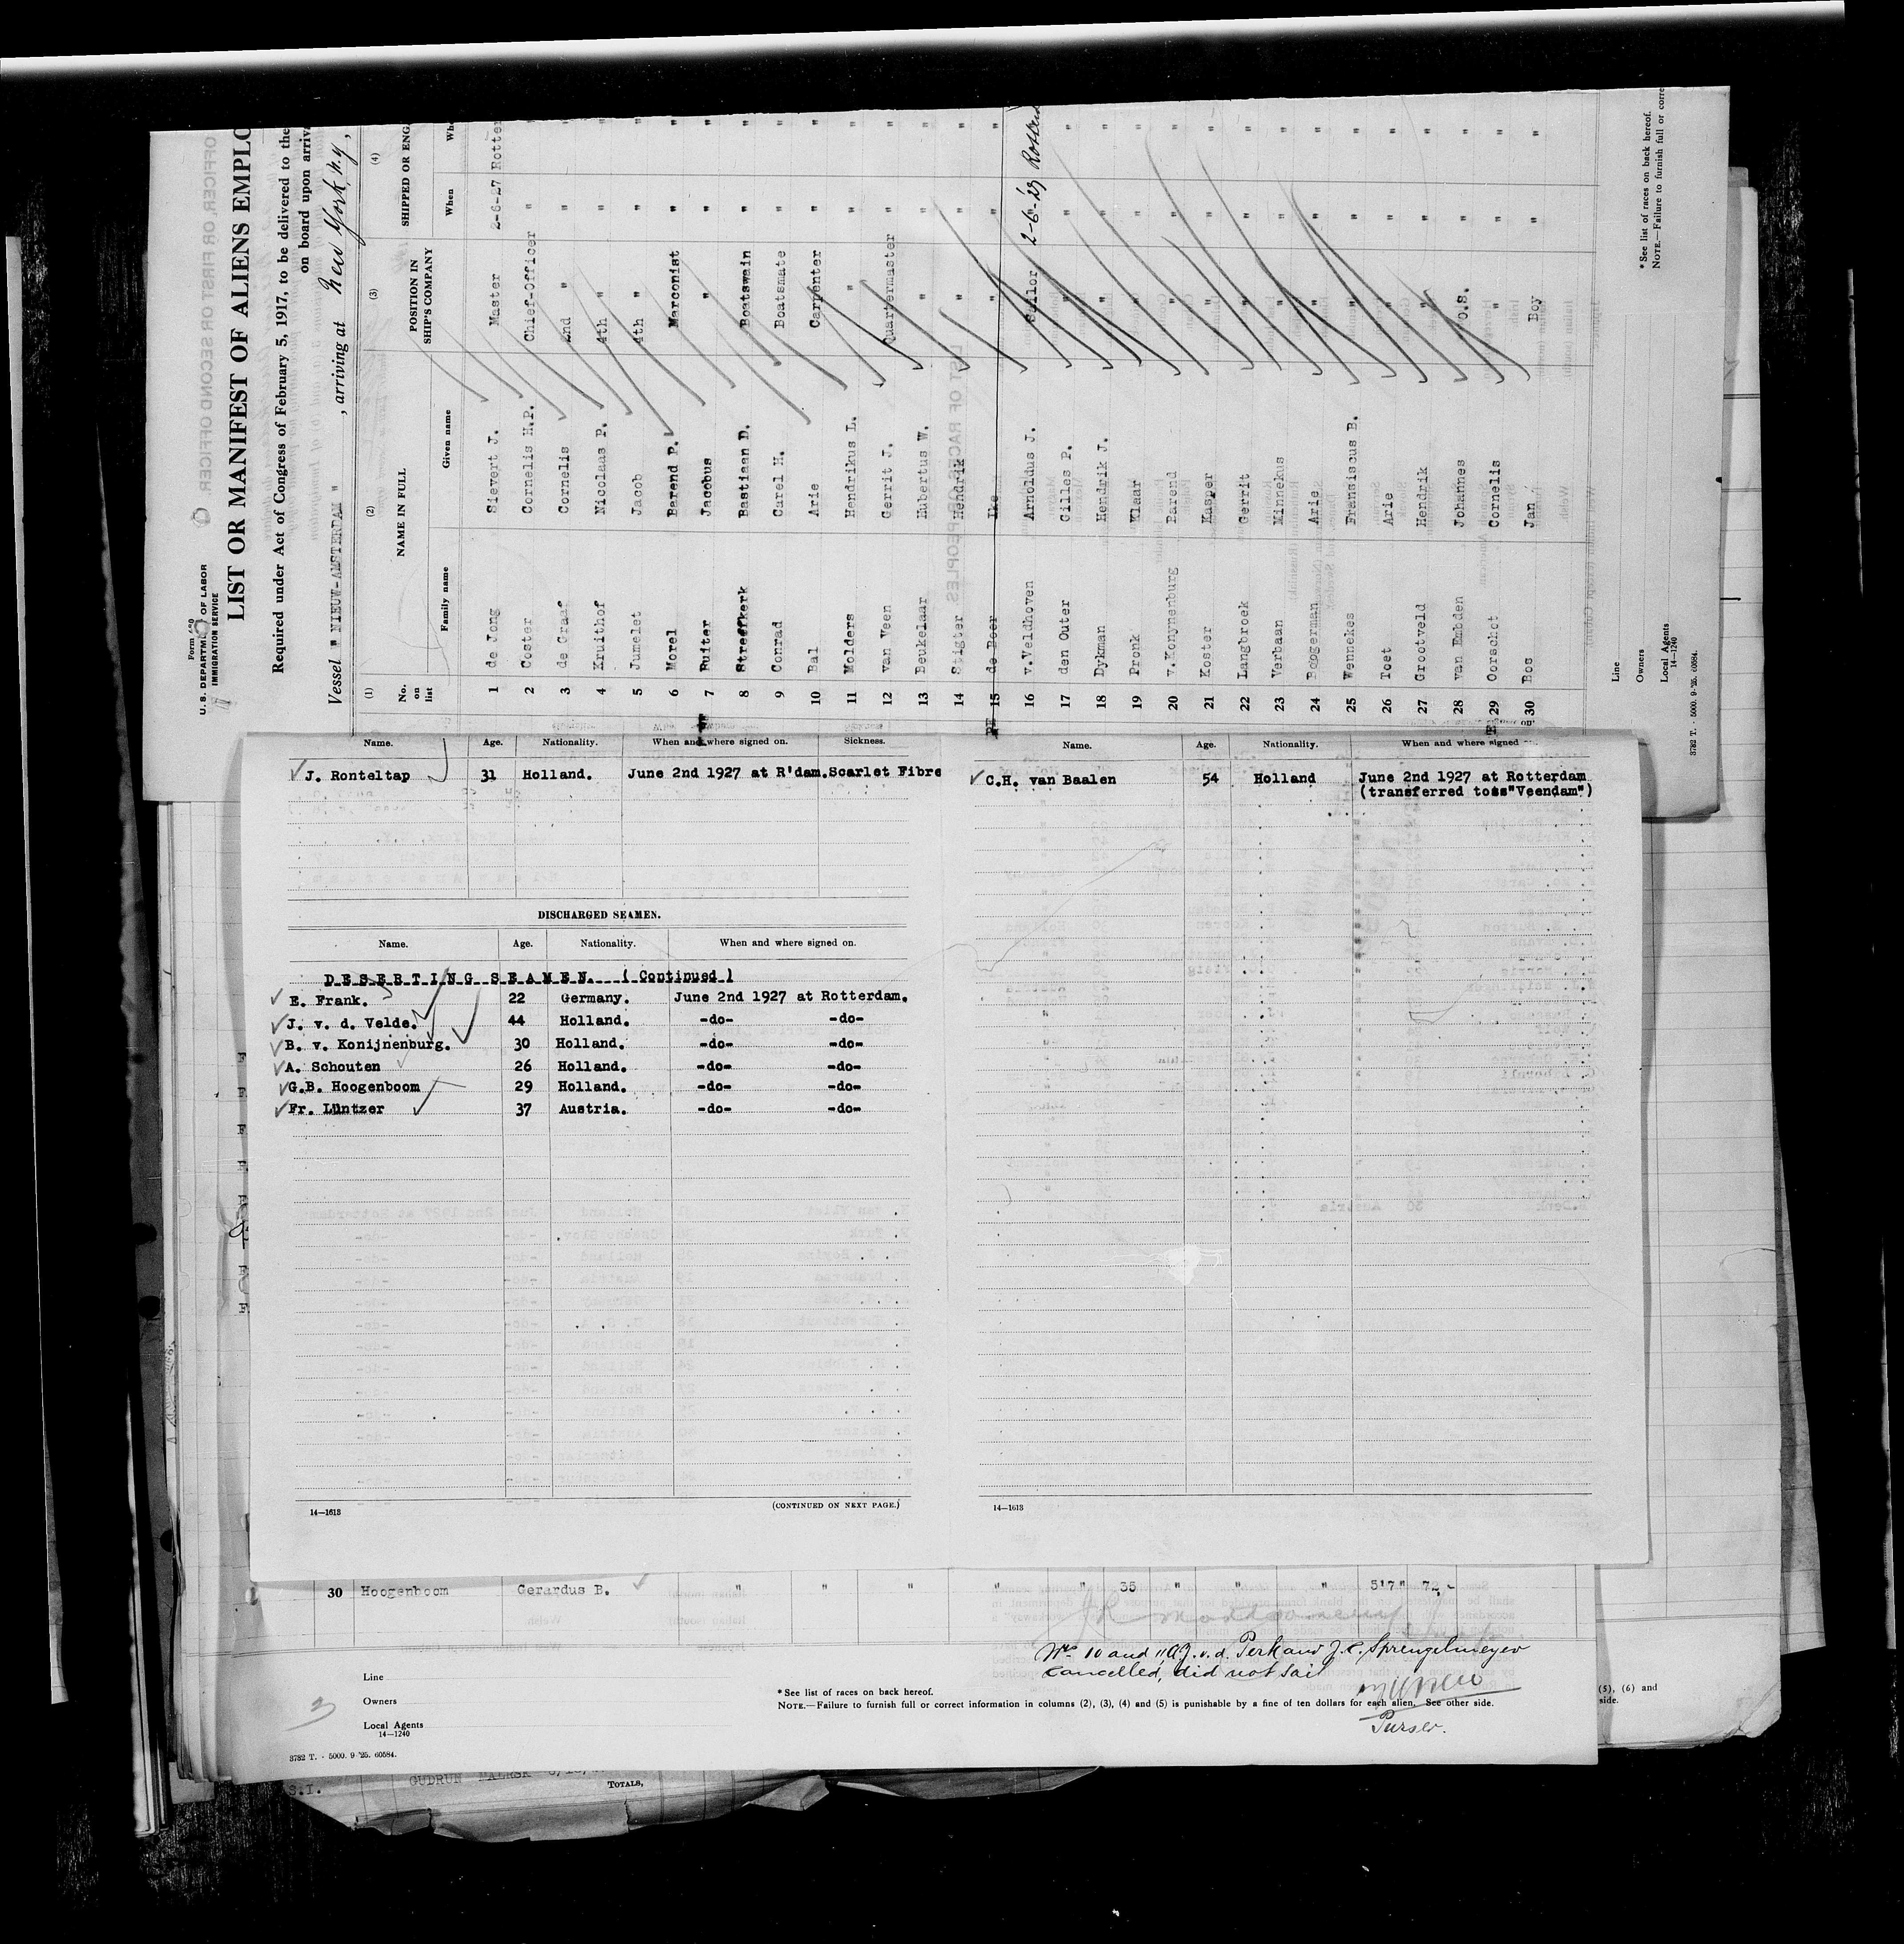 Form 680
U. S. DEPARTMENT OF LABOR
IMMIGRATION SERVICE
LIST OR MANIFEST OF ALIENS EMPLO
Required under Act of Congress of February 5, 1917, to be delivered to the
on board upon arriv
Vessel " NIEUW-AMSTERDAM " , arriving at New York, N.Y.,
(1) (2) (3) (4)
No. on list NAME IN FULL POSITION IN SHIP'S COMPANY SHIPPED OR ENG
Family name Given name When Wh
1 de Jong Sievert J. Master 2-6-27 Rotter
2 Coster Cornelis H.P. Chief-Officer " "
3 de Graaf Cornelis 2nd " " "
4 Kruithof Nicolaas P. 4th " " "
5 Jumelet Jacob 4th " " "
6 Morel Barend P. Marconist " "
7 Ruiter Jacobus " " "
8 Streefkerk Bastiaan D. Boatswain " "
9 Conrad Carel H. Boatsmate " "
10 Bal Arie Carpenter " "
11 Molders Hendrikus L. " " "
12 van Veen Gerrit J. Quartermaster " "
13 Beukelaar Hubertus W. " " "
14 Stigter Hendrik " " "
15 de Boer Ike " " "
16 v.Veldhoven Arnoldus J. Sailor 2-6-'27 Rotterd
17 den Outer Gilles P. " " "
18 Dykman Hendrik J. " " "
19 Pronk Klaar " " "
20 v.Konynenburg Barend " " "
21 Koster Kasper " " "
22 Langbroek Gerrit " " "
23 Verbaan Minnekus " " "
24 Boogerman Arie " " "
25 Wennekes Fransiscus B. " " "
26 Toet Arie " " "
27 Grootveld Hendrik " " "
28 van Embden Johannes O.S. " "
29 Oorschot Cornelis " " "
30 Bos Jan Boy " "
* See list of races on back hereof.
NOTE.—Failure to furnish full or corre
Line
Owners
Local Agents
14—1240
3782 T. - 5000. 9-'25. 60584.
Name. Age. Nationality. When and where signed on. Sickness.
J. Ronteltap 31 Holland. June 2nd 1927 at R'dam. Scarlet Fibre
DISCHARGED SEAMEN.
Name. Age. Nationality. When and where signed on.
DESERTING SEAMEN. (Continued)
E. Frank. 22 Germany. June 2nd 1927 at Rotterdam.
J. v. d. Velde. 44 Holland. -do- -do-
B. v. Konijnenburg. 30 Holland. -do- -do-
A. Schouten 26 Holland. -do- -do-
G.B. Hoogenboom 29 Holland. -do- -do-
Fr. Lüntzer 37 Austria. -do- -do-
14—1613 (CONTINUED ON NEXT PAGE.)
Name. Age. Nationality. When and where signed
C.H. van Baalen 54 Holland June 2nd 1927 at Rotterdam
(transferred toss"Veendam")
14—1613
30 Hoogenboom Gerardus B. " " " " " 35 " " " 5'7" "
Nos. 10 and 11 A.J. v.d. Perk and J.C. Sprengelmeyer
cancelled, did not sail
Purser.
Line
Owners
Local Agents
14—1240
* See list of races on back hereof.
NOTE.—Failure to furnish full or correct information in columns (2), (3), (4) and (5) is punishable by a fine of ten dollars for each alien. See other side.
(5), (6) and
side.
3782 T. - 5000. 9 '25. 60584.
S.I. GUDRUN MAERSK
TOTALS,